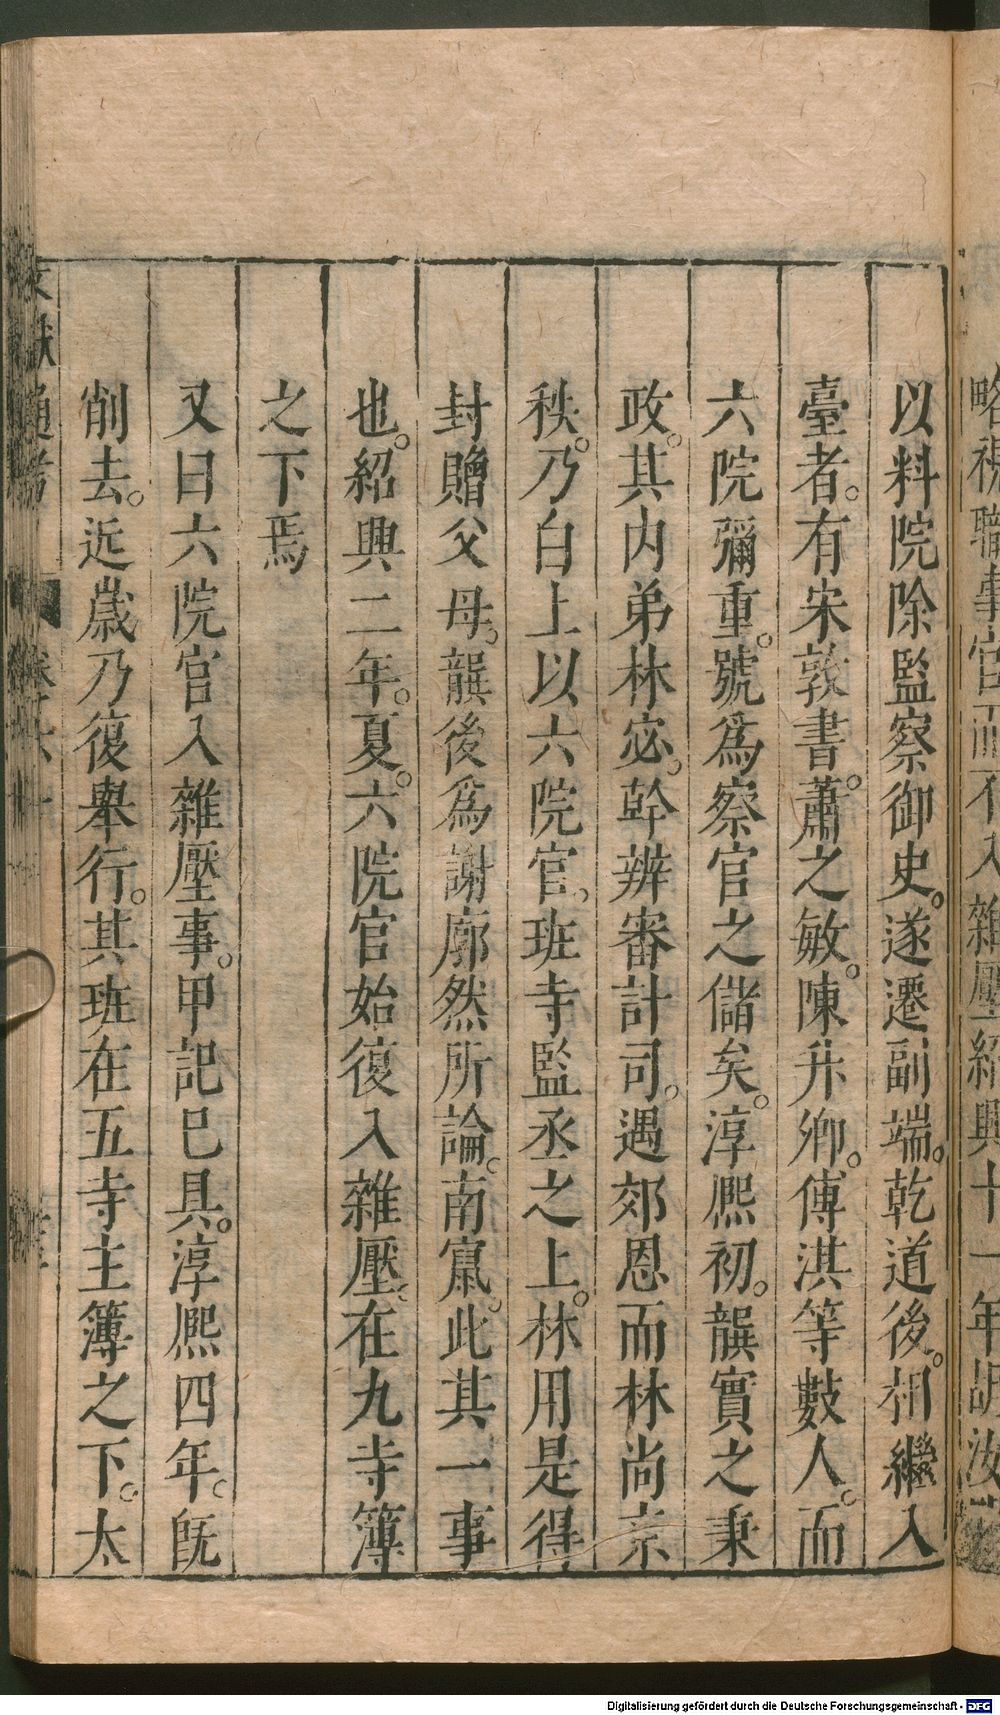 略視職事官而不入雜壓紹興十一年胡汝
以料院除監察御史。遂遷副端。乾道後。相繼入
臺者。有宋敦書。蕭之敏。陳升卿。傅淇等數人。而
六院彌重。號爲察官之儲矣。淳熈初。龔實之秉
政。其内弟林宓。幹辨審計司。遇郊恩而林尚京
秩。乃白上以六院官、班寺監丞之上。林用是得
封贈父母。龔後爲謝廓然所論。南竄。此其一事
也。紹興二年。夏。六院官始復入雜壓。在九寺簿
之下焉
又曰六院官入雜壓事。甲記巳具。淳熈四年。旣
削去。近歲乃復舉行。其班在五寺主簿之下。太
文獻通考 卷六十
Digitalisierung gefördert durch die Deutsche Forschungsgemeinschaft - DFG